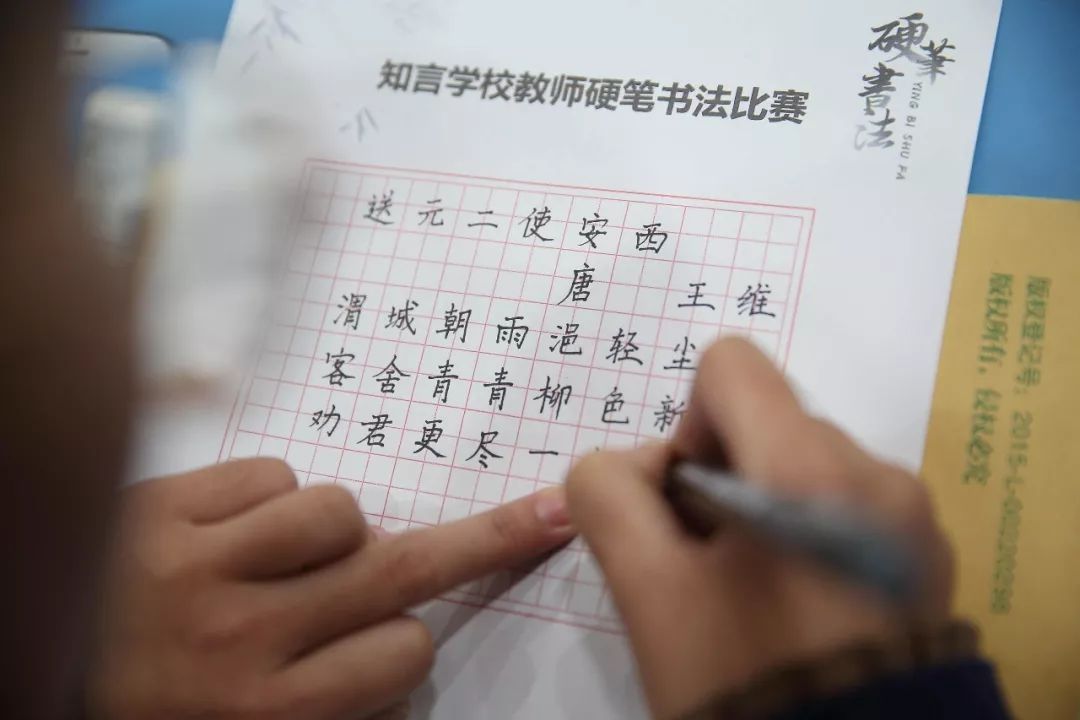 知言学校教师硬笔书法比赛
硬筆書法
YING BI SHU FA
送元二使安西
唐 王维
渭城朝雨浥轻尘
客舍青青柳色新
劝君更尽一
版权登记号：2015-L-00220298
版权所有，侵权必究